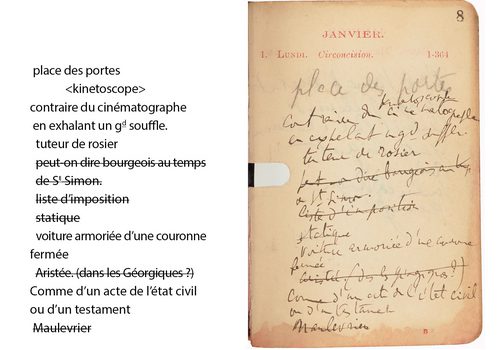 place des portes
<kinetoscope>
contraire du cinématographe
en exhalant un gd souffle.
tuteur de rosier
peut-on dire bourgeois au temps
de St Simon.
liste d'imposition
statique
voiture armoriée d'une couronne
fermée
Aristée. (dans les Géorgiques ?)
Comme d'un acte de l'état civil
ou d'un testament
Maulevrier
8
JANVIER.
1. LUNDI. Circoncision. 1-364
place des portes
kinetoscope
contraire du cinématographe
en exhalant un gd souffle.
tuteur de rosier
peut-on dire bourgeois au temps
de St Simon.
liste d'imposition
statique
voiture armoriée d'une couronne
fermée
Aristée (dans les Géorgiques ?)
Comme d'un acte de l'état civil
ou d'un testament
Maulevrier
B